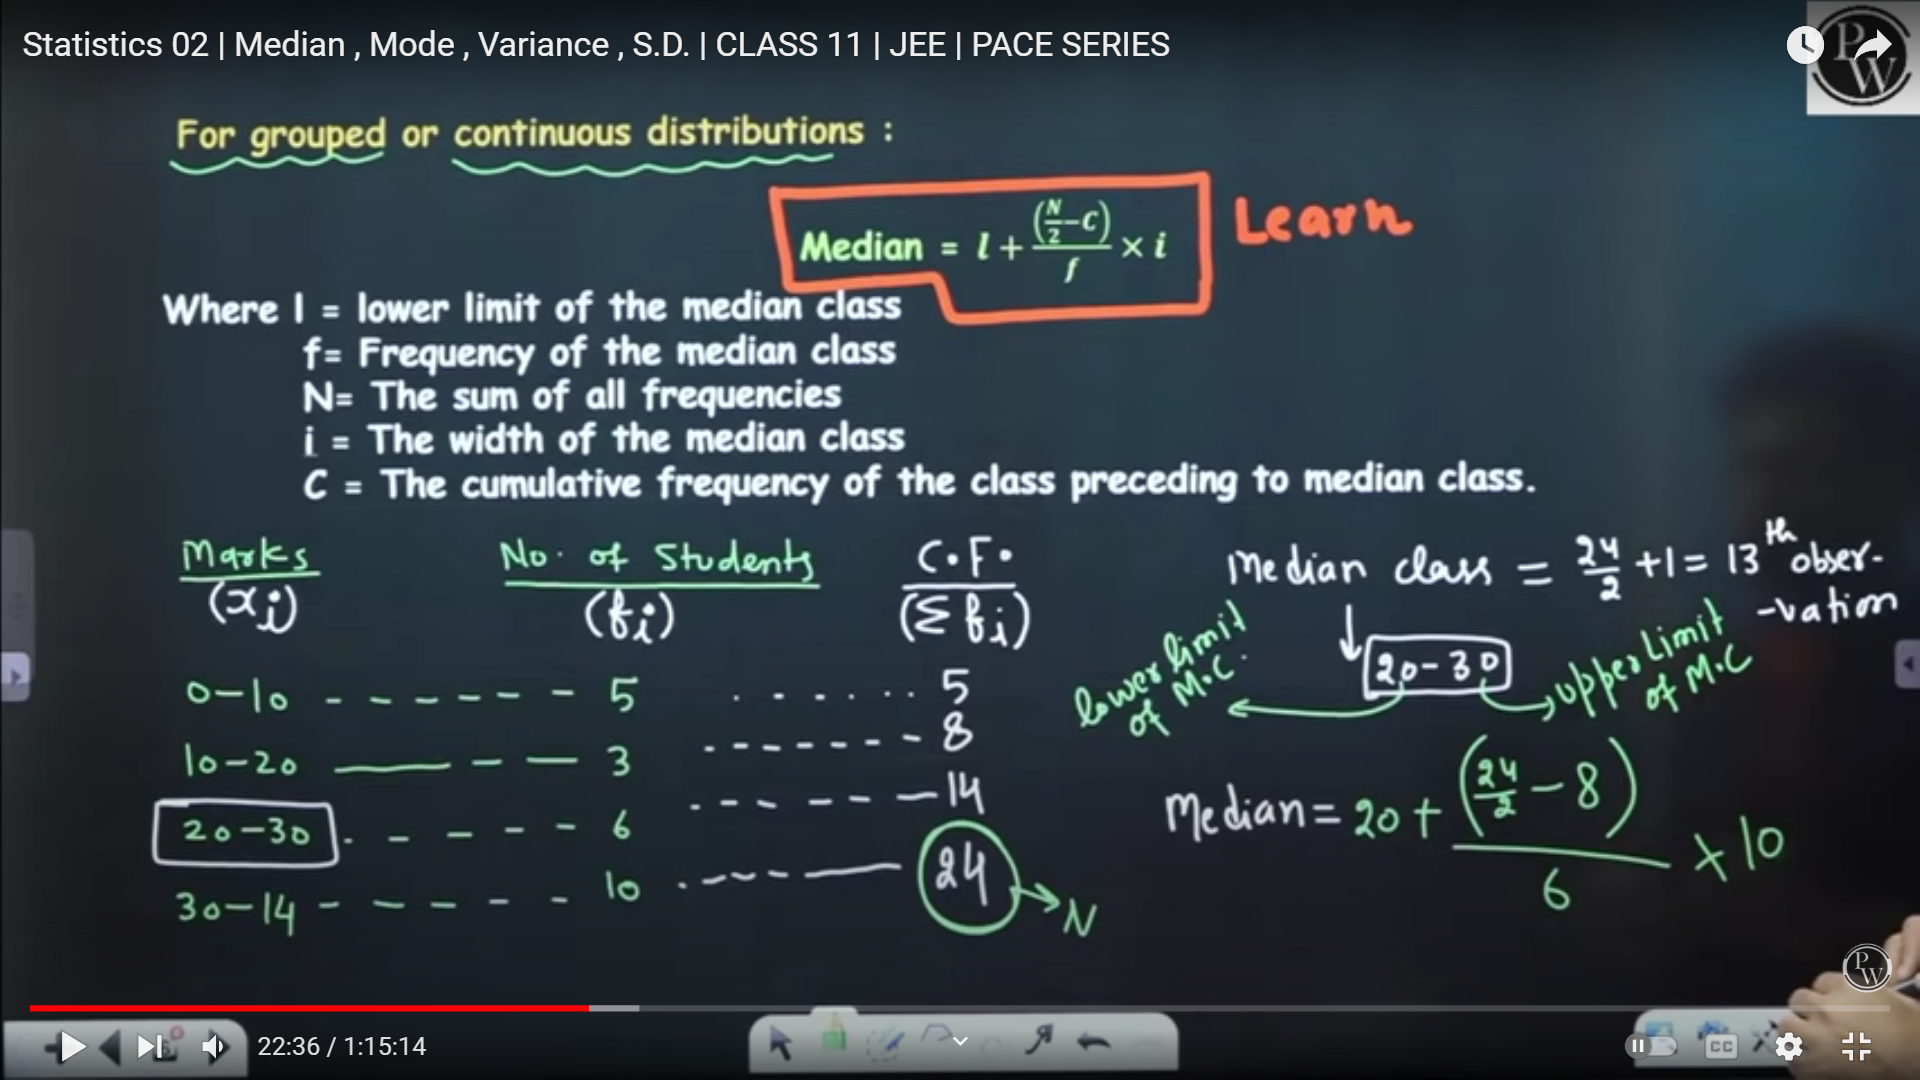 Statistics 02 | Median , Mode , Variance , S.D. | CLASS 11 | JEE | PACE SERIES
P
W
For grouped or continuous distributions :
Median = l + (N/2 − C)/f × i
Learn
Where l = lower limit of the median class
f= Frequency of the median class
N= The sum of all frequencies
i = The width of the median class
C = The cumulative frequency of the class preceding to median class.
Marks No. of Students C.F.
(xi) (fi) (Σfi)
0-10 5 5
10-20 3 8
20-30 6 14
30-14 10 24 → N
Median class = 24/2 + 1 = 13th obser-
-vation
20-30
lower limit
of M.C.
upper Limit
of M.C
Median = 20 + (24/2 − 8)/6 × 10
P
W
22:36 / 1:15:14
CC